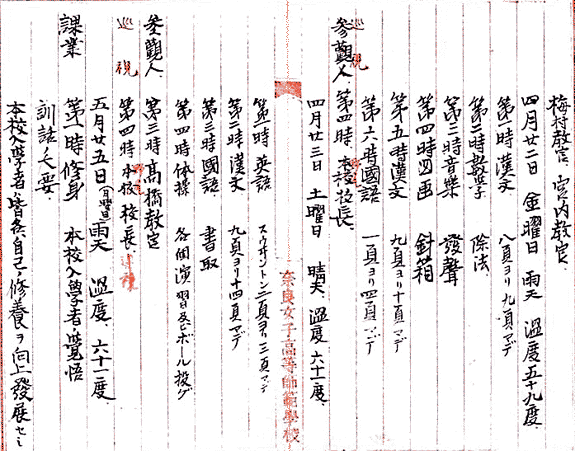 梅村教官、宮内教官、
四月廿二日 金曜日 雨天 温度五十九度、
第一時漢文 八頁ヨリ九頁マデ
第二時数学 除法、
第三時音楽 發聲
第四時図画 針箱
第五時漢文 九頁ヨリ十頁マデ
第六時國語 一頁ヨリ四頁マデ
巡視
参觀人、第四時、本校校長、
四月廿三日 土曜日 晴天、温度六十度、
奈良女子高等師範學校
第一時 英語 スウヰントン二頁ヨリ三頁マデ
第二時漢文 九頁ヨリ十四頁マデ
第三時國語 書取
第四時体操 各個演習及ビボール投ゲ
参觀人 第三時髙橋教官
巡視 第四時本校校長 巡視
五月廿五日(月曜日)雨天 温度、六十一度、
課業 第一時修身 本校入學者ノ覚悟
訓話ノ大要、
本校入學者ハ皆各自己ノ修養ヲ向上發展セシ